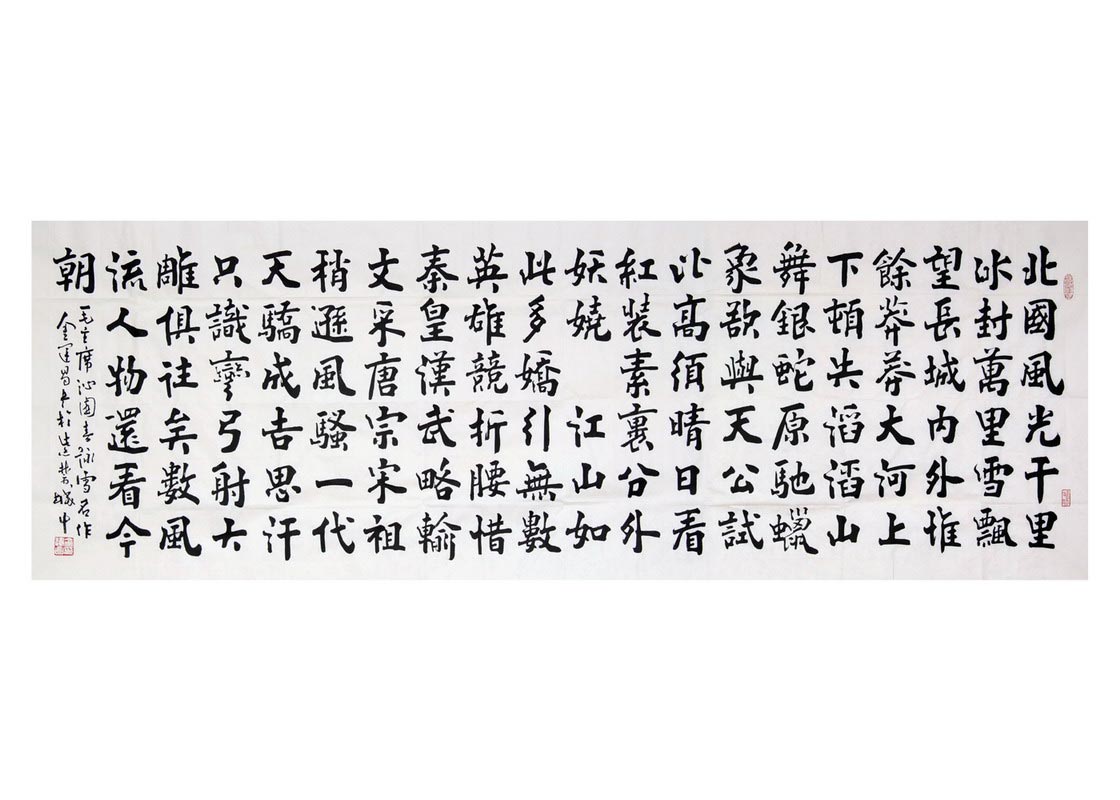 北國風光千里
冰封萬里雪飄
望長城内外惟
餘莽莽大河上
下頓失滔滔山
舞銀蛇原馳蠟
象欲與天公試
比高須晴日看
紅装素裹分外
妖嬈 江山如
此多嬌引無數
英雄競折腰惜
秦皇漢武略輸
文采唐宗宋祖
稍遜風騷一代
天驕成吉思汗
只識彎弓射大
雕俱往矣數風
流人物還看今
朝
毛主席沁園春詠雪名作